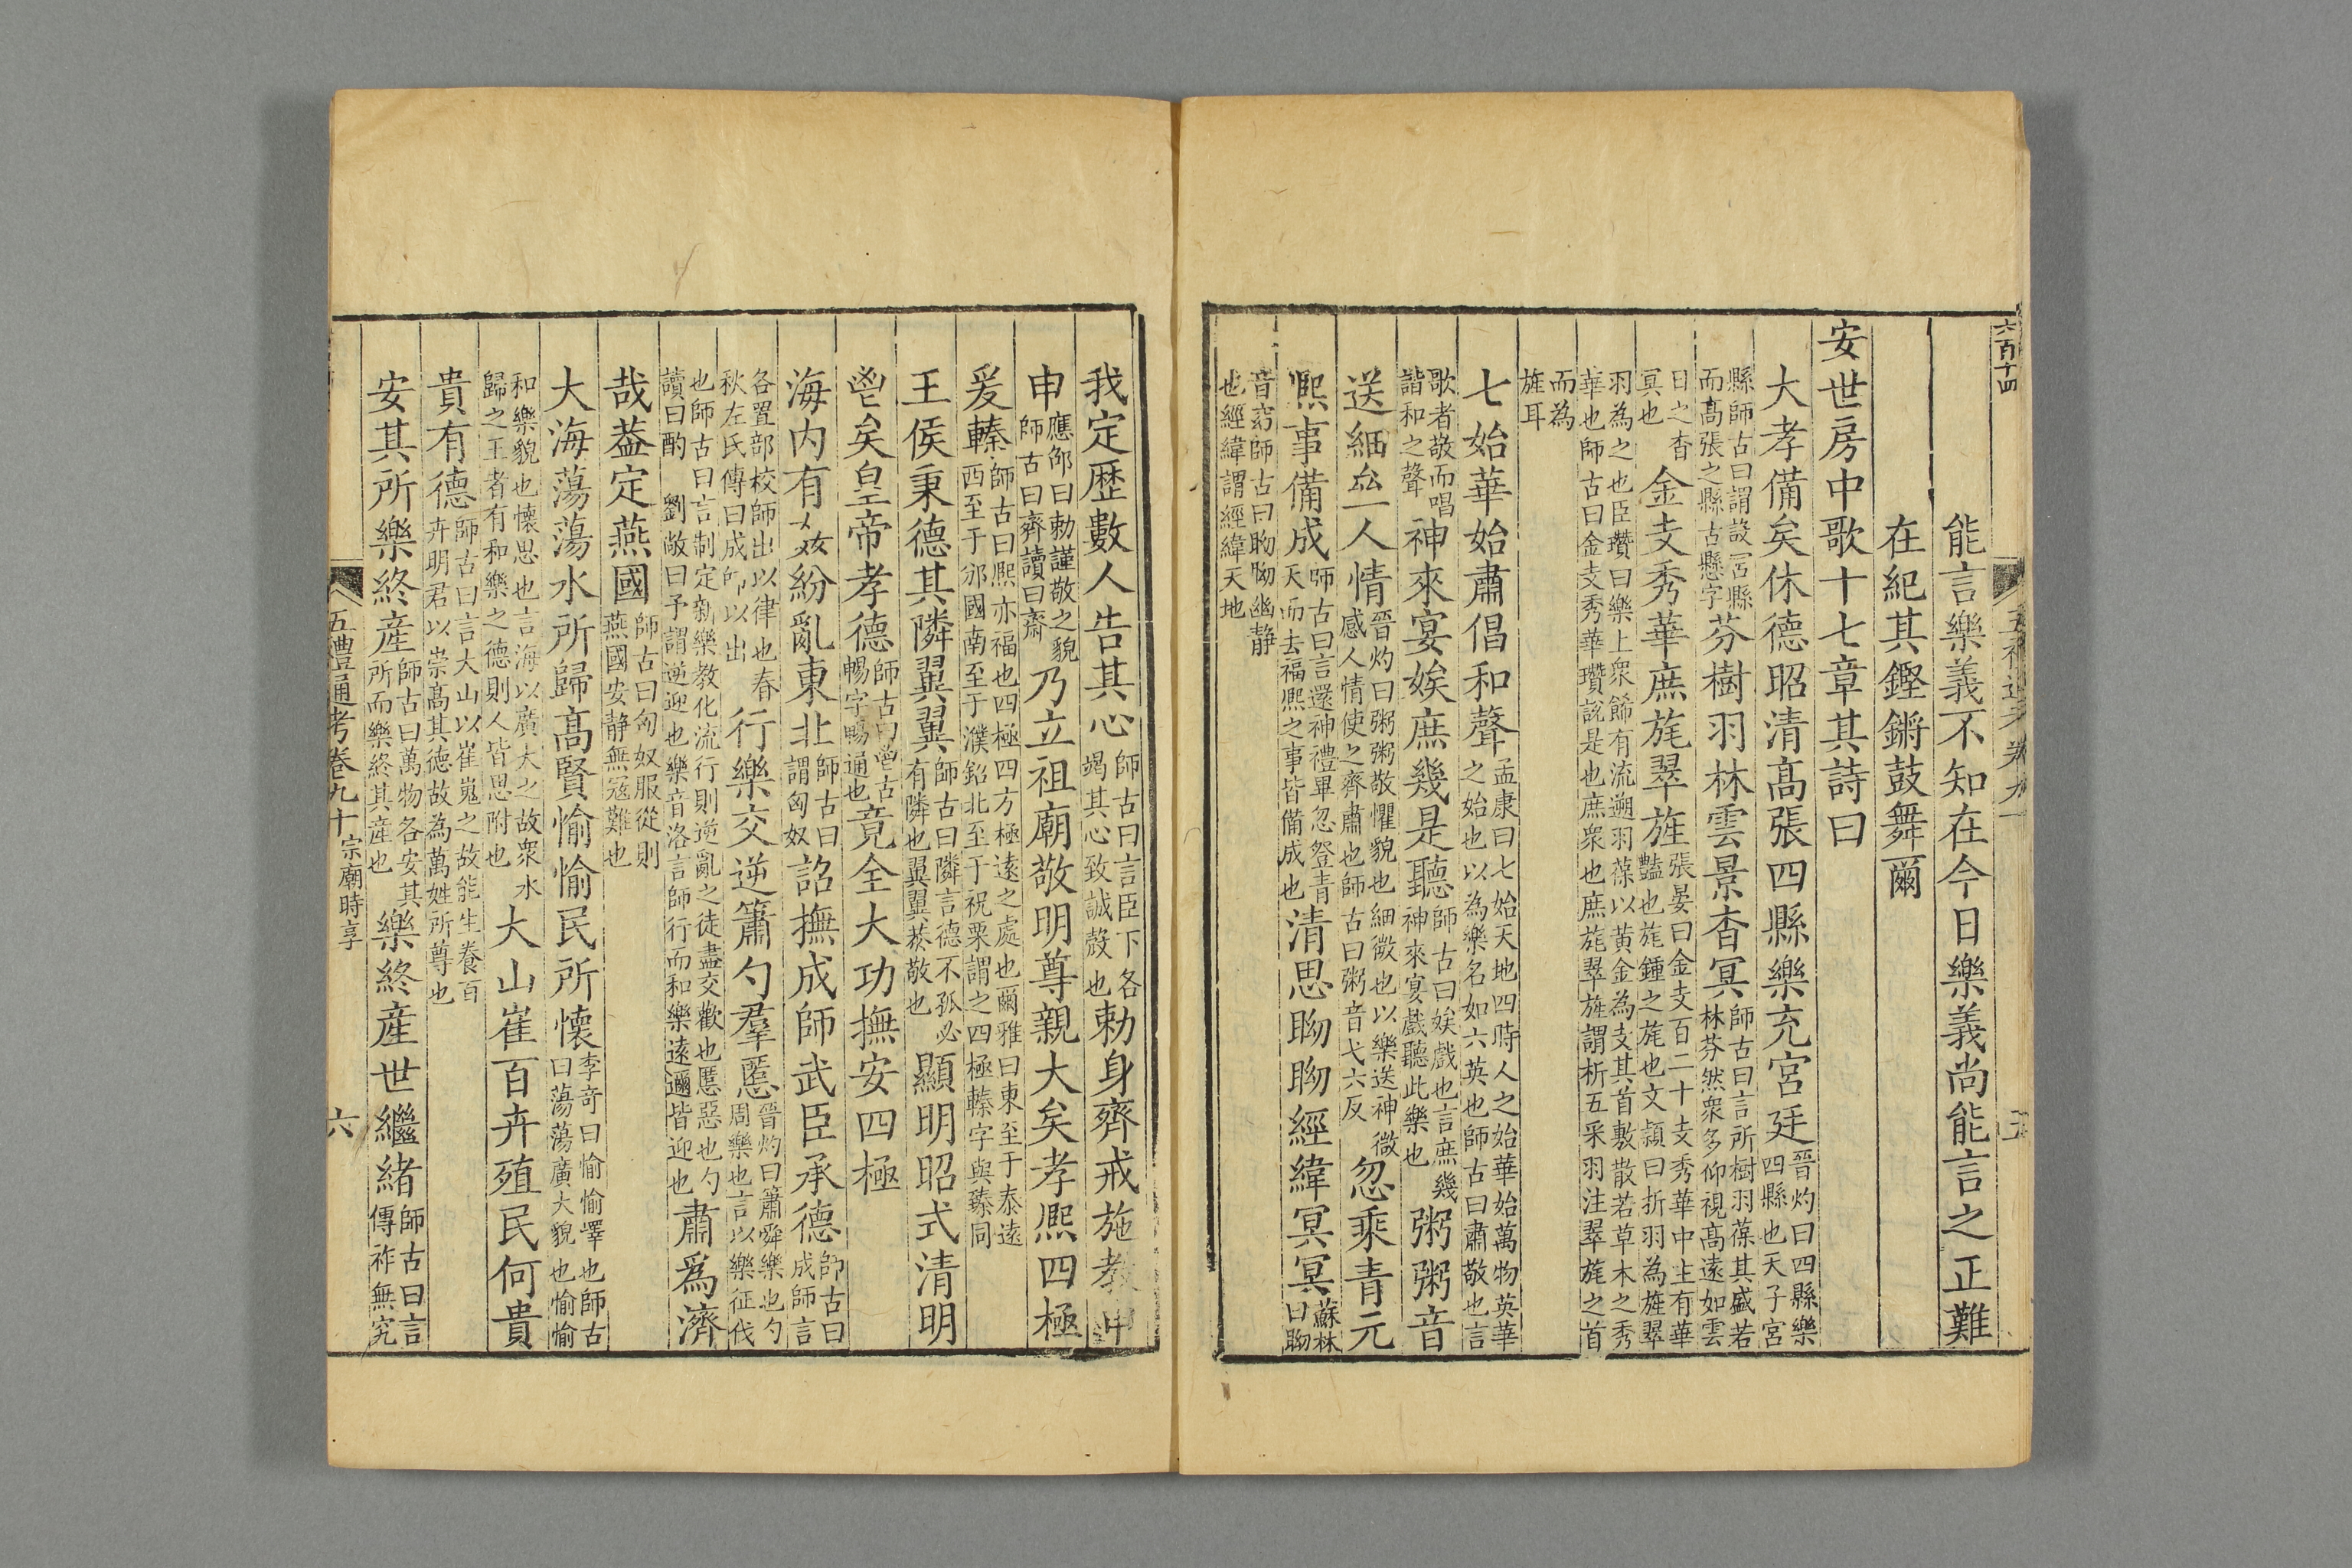 六百十四
能言樂義不知在今日樂義尚能言之正難
在紀其鏗鏘鼓舞爾
安世房中歌十七章其詩曰
大孝備矣休德昭清髙張四縣樂充宮廷晉灼曰四縣樂四縣也天子宮
縣師古曰謂設宮縣而髙張之縣古懸字芬樹羽林雲景杳冥師古曰言所樹羽葆其盛若林芬然衆多仰視高遠如雲
日之杳冥也金支秀華庶旄翠旌張晏曰金支百二十支秀華中主有華豔也旄鍾之旄也文頴曰析羽為旌翠
羽為之也臣瓚曰樂上衆飾有流遡羽葆以黃金為支其首敷散若草木之秀華也師古曰金支秀華瓚說是也庶衆也庶旄翠旌謂析五采羽注翠旄之首
而為旌耳
七始華始肅倡和聲孟康曰七始天地四時人之始華始萬物英華之始也以為樂名如六英也師古曰肅敬也言
歌者敬而唱諧和之聲神來宴娭庶幾是聽師古曰娭戲也言庶幾神來宴戲聽此樂也粥粥音
送細㕕人情晉灼曰粥粥敬懼貌也細微也以樂送神微感人情使之齊肅也師古曰粥音弋六反忽乘青元
熈事備成師古曰言還神禮畢忽登青天而去福熈之事皆備成也清思眑眑經緯冥冥蘇林曰眑
音窈師古曰眑眑幽靜也經緯謂經緯天地
我定歴數人告其心師古曰言臣下各竭其心致誠慤也勅身齊戒施教申
申應邵曰勅謹敬之貌師古曰齊讀曰齋乃立祖廟敬明尊親大矣孝熈四極
爰轃師古曰熈亦福也四極四方極遠之處也爾雅曰東至于泰遠西至于邠國南至于濮鈆北至于祝栗謂之四極轃字與臻同
王侯秉德其隣翼翼師古曰隣言德不孤必有隣也翼翼恭敬也顯明昭式清明
鬯矣皇帝孝德師古曰鬯古暢字暢通也竟全大功撫安四極
海内有姦紛亂東北師古曰謂匈奴詔撫成師武臣承德師古曰成師言
各置部校師出以律也春秋左氏傳曰成師以出行樂交逆簫勺羣慝晉灼曰簫舜樂也勺周樂也言以樂征伐
也師古曰言制定新樂教化流行則逆亂之徒盡交歡也慝惡也勺讀曰酌　劉敞曰予謂逆迎也樂音洛言師行而和樂遠邇皆迎也肅爲濟
哉葢定燕國師古曰匈奴服從則燕國安静無冦難也
大海蕩蕩水所歸髙賢愉愉民所懷李奇曰愉愉懌也師古曰蕩蕩廣大貌也愉愉
和樂貌也懷思也言海以廣大之故衆水歸之王者有和樂之德則人皆思附也大山崔百卉殖民何貴
貴有德師古曰言大山以崔嵬之故能生養百卉明君以崇髙其德故為萬姓所尊也
安其所樂終産師古曰萬物各安其所而樂終其産也樂終産世繼緒師古曰言傳祚無究
五禮通考卷九十宗廟時享
六